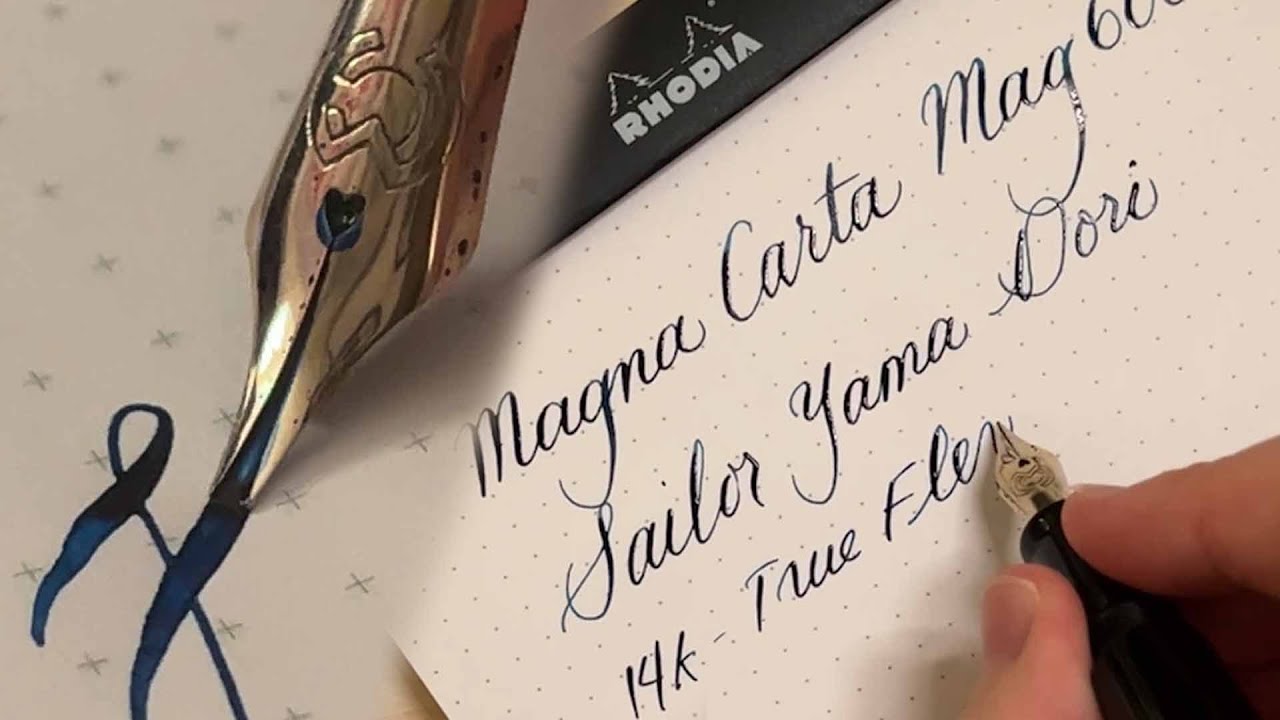 RHODIA
Magna Carta Mag 600
Sailor Yama Dori
14k - True Flex